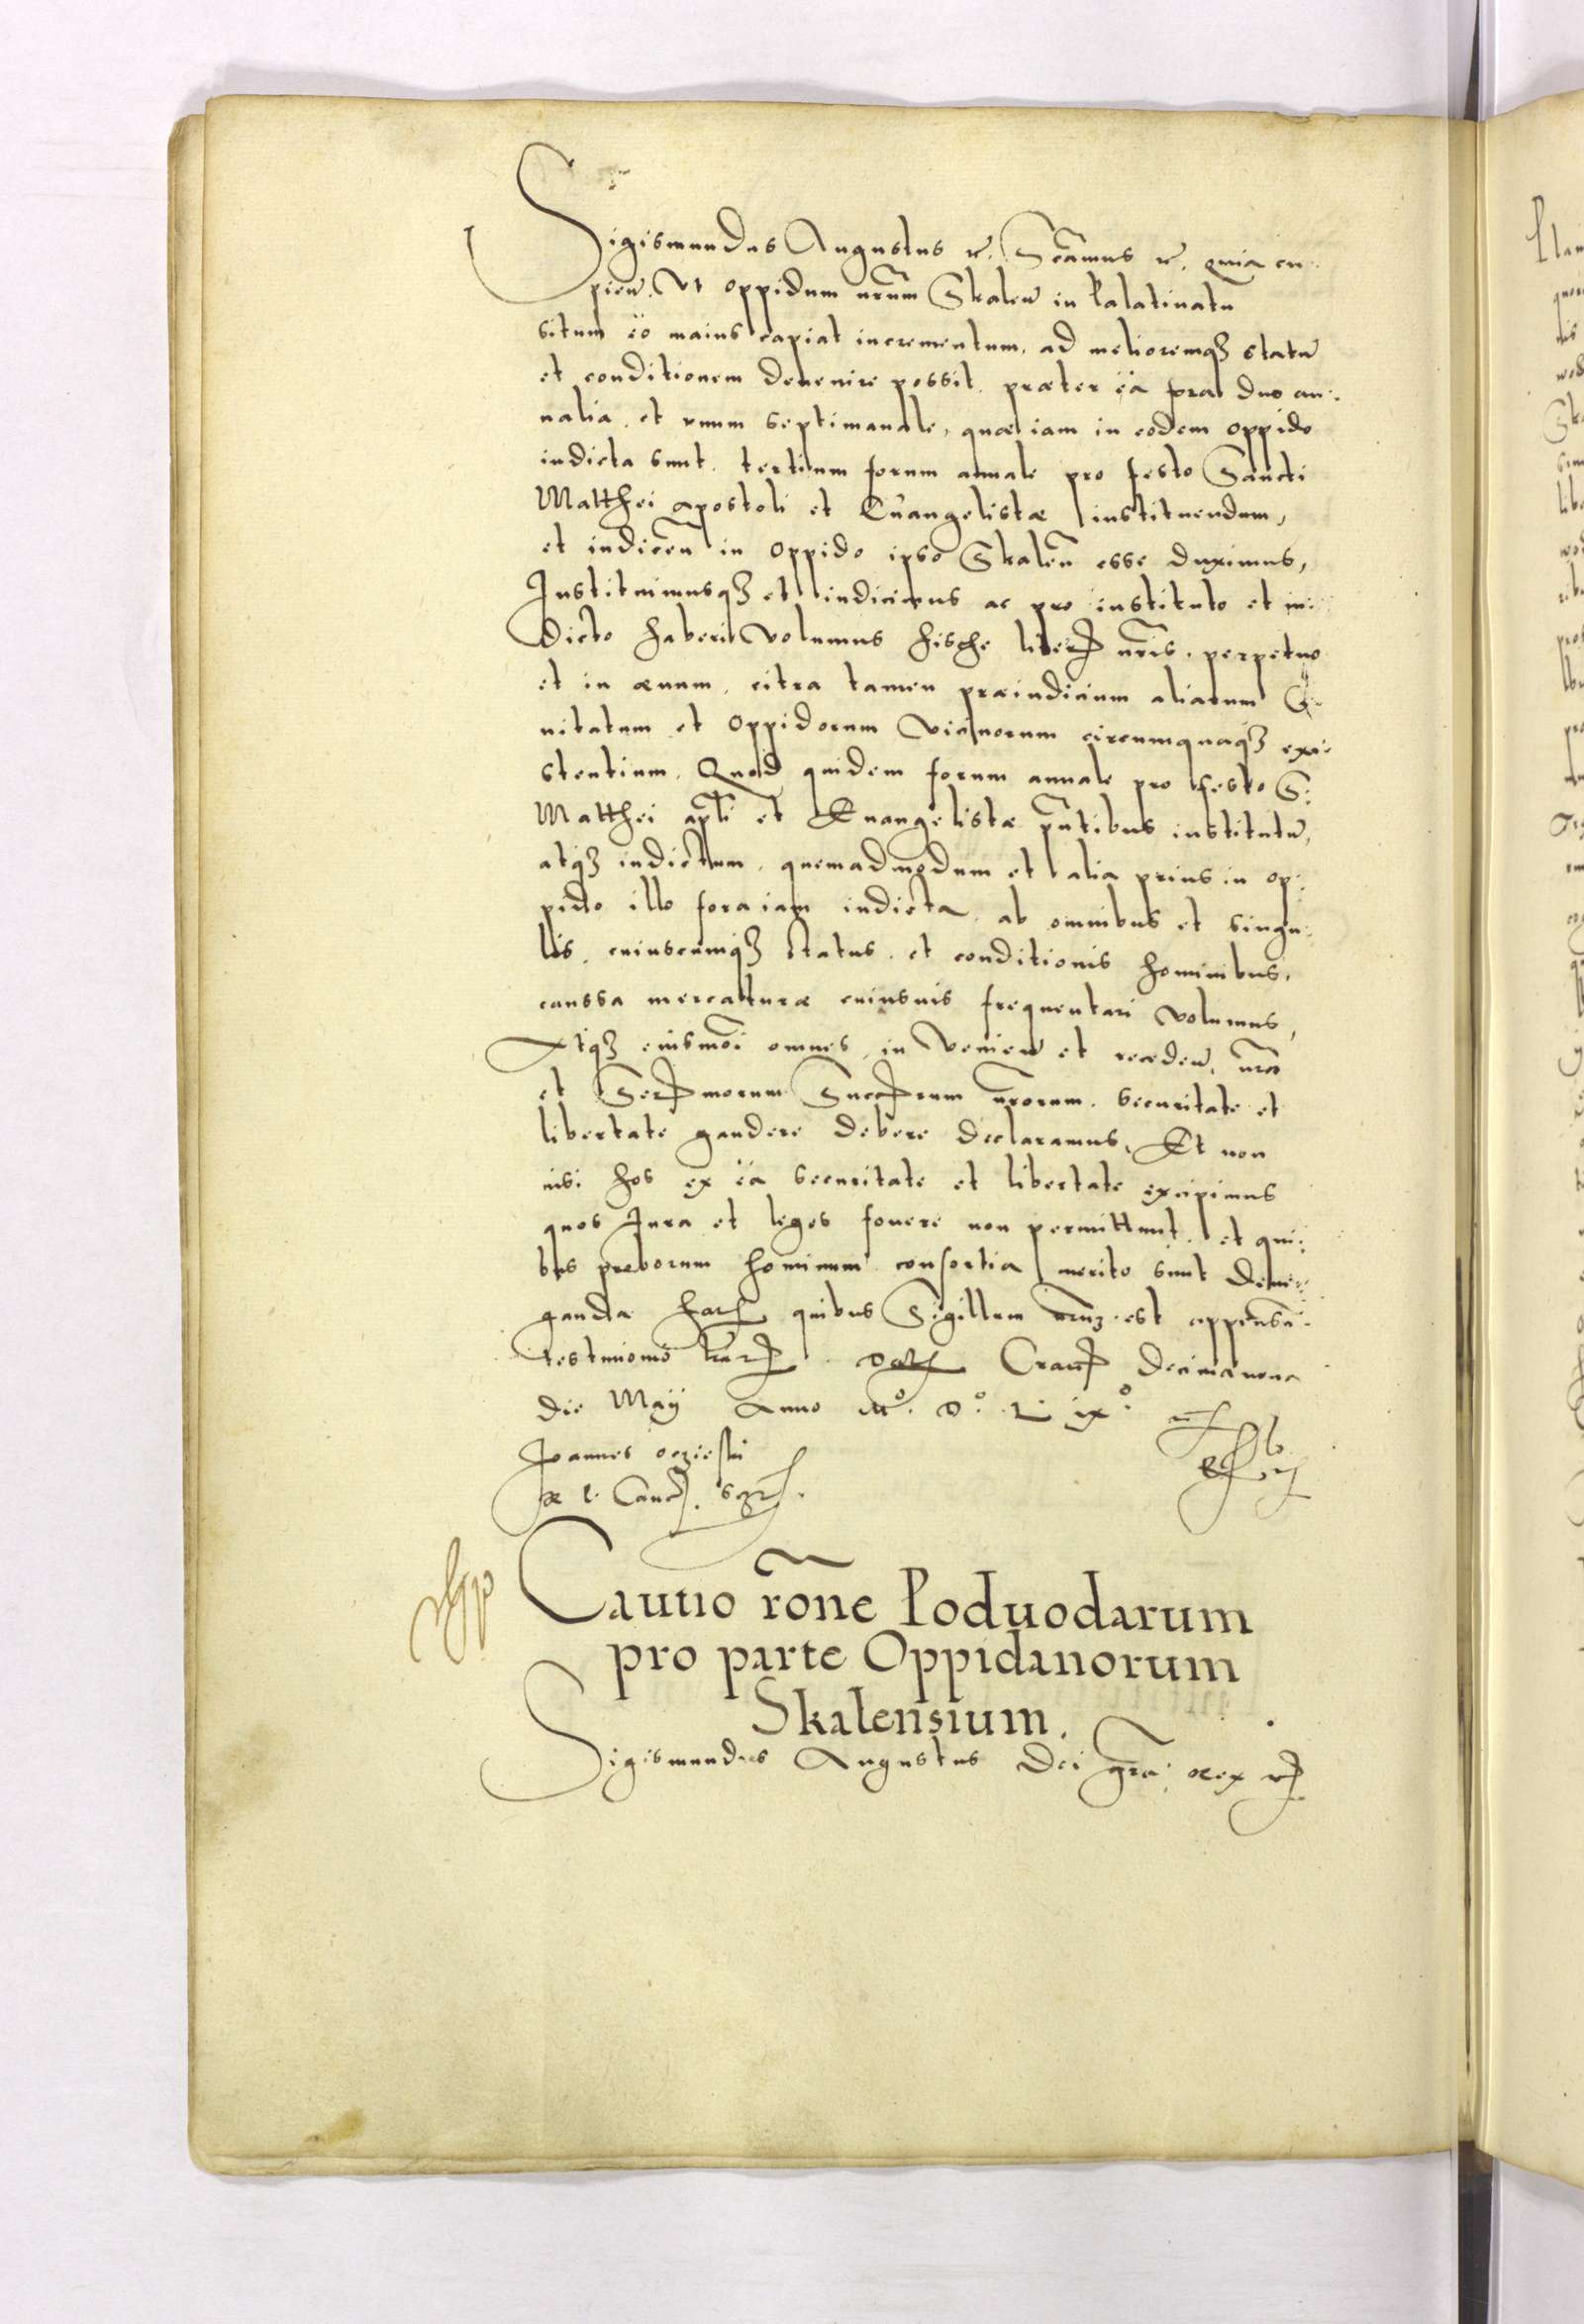 Sigismundus Augustus etc. Scimus etc. quia cu:
pien. Vt oppidum nrum Skalen in Palatinatu
situm eo maius capiat incrementum, ad melioremqз statu
et conditionem deuenire possit, præter ea fora duo an:
nalia, et vnum septimanale, quæ iam in eodem oppido
indicta sunt, tertium forum annale pro festo Sancti
Matthei apostoli et Euangelistæ instituendum,
et indicen in oppido ipso Skalen esse duximus,
Instituimusqз et indicimus ac pro instituto et in:
dicto haberi volumus hisce lris nris, perpetuo
et in æuum, citra tamen præiudicium aliarum Ci:
uitatum et oppidorum vicinorum circumquaqз exi:
stentium. Quod quidem forum annale pro festo S:
Matthei apli et Euangelistæ pntibus institutu,
atqз indictum, quemadmodum et alia prius in op:
pido illo fora iam indicta, ab omnibus et singu:
lis, cuiuscumqз status, et conditionis hominibus,
caussa mercaturæ cuiusuis frequentari volumus,
Atqз eiusmoi omnes, in venien et receden, nra
et Ser morum Succ rum nrorum, securitate et
libertate gaudere debere declaramus, Et non
nisi hos ex ea securitate et libertate excipimus
quos Jura et leges fouere non permittunt, et qui:
bus proborum hominum consortia merito sunt dene:
ganda har quibus Sigillum nrum est appensu
testimonio lrar Dat Crac decima nona
die Maij Anno Mo. Do. L ixo.
Joannes Oczieski
R. P. Canc. sspt.
Cautio rone Poduodarum
pro parte Oppidanorum
Skalensium.
Sigismundus Augustus Dei gra. Rex etc.